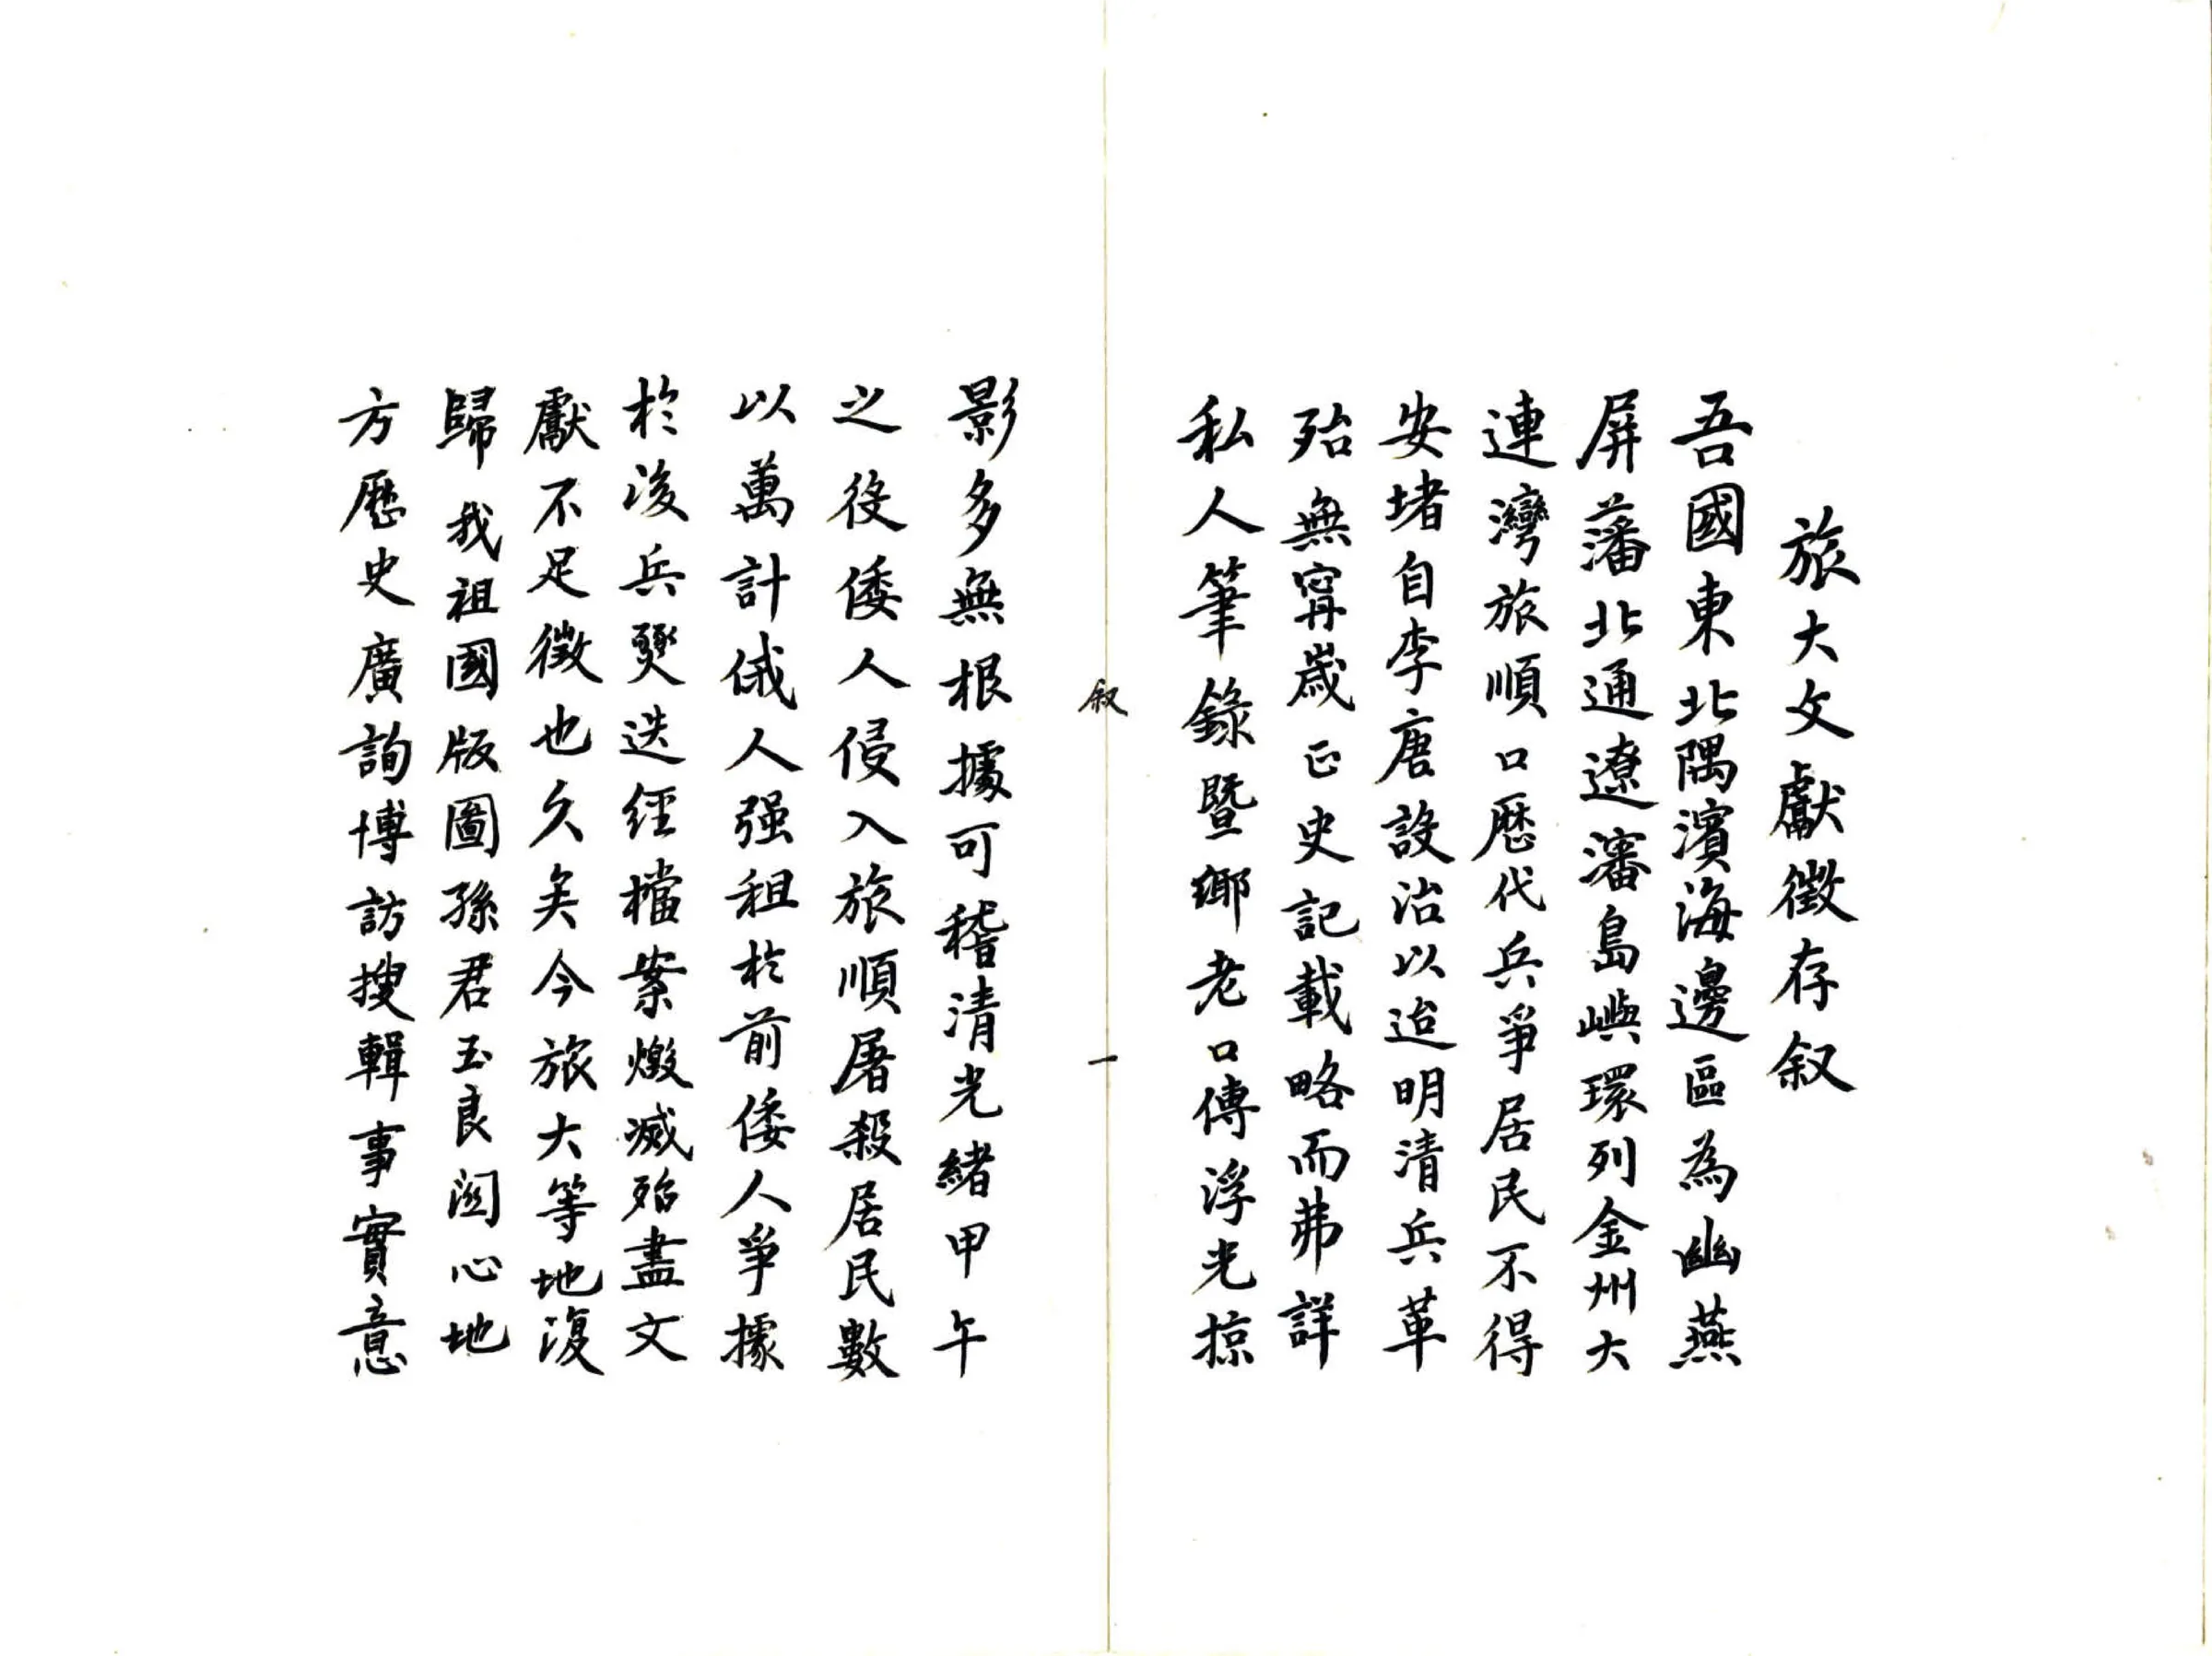 旅大文獻徵存叙
吾國東北隅濱海邊區為幽燕
屏藩北通遼瀋島嶼環列金州大
連灣旅順口歷代兵爭居民不得
安堵自李唐設治以迨明清兵革
殆無寗歲正史記載略而弗詳
私人筆錄暨鄉老口傳浮光掠
叙
一
影多無根據可稽清光緒甲午
之役倭人侵入旅順屠殺居民數
以萬計俄人强租於前倭人爭據
於後兵燹迭經檔案燬滅殆盡文
獻不足徵也久矣今旅大等地復
歸我祖國版圖孫君玉良関心地
方歷史廣詢博訪搜輯事實意